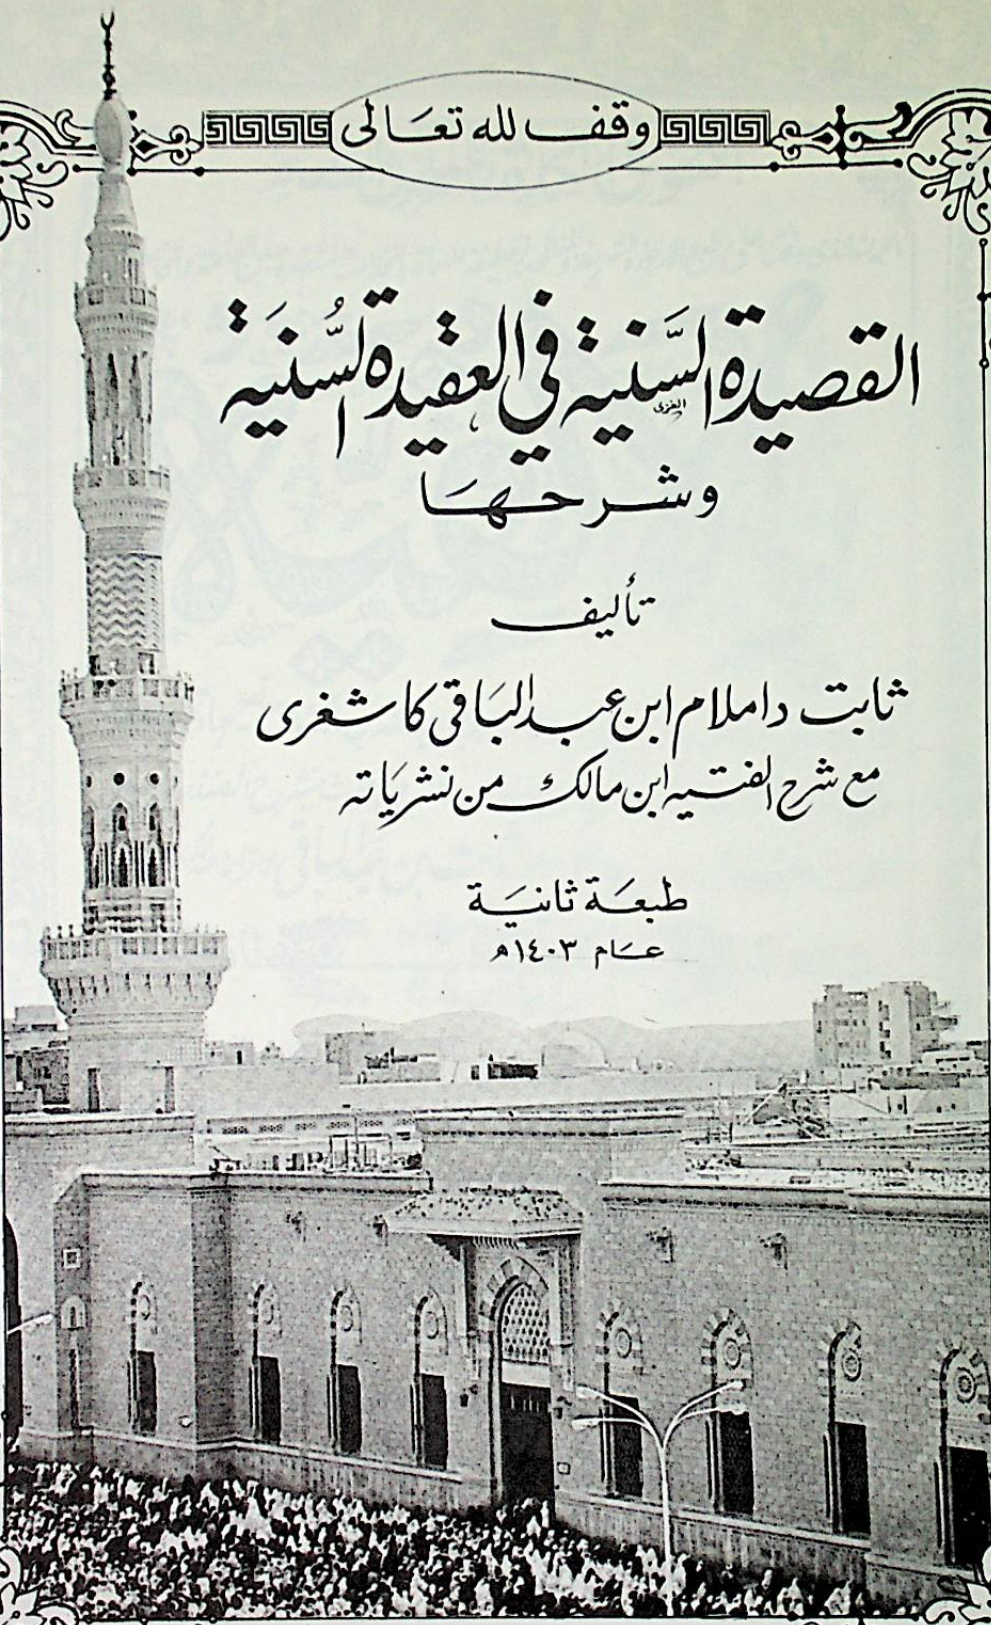 وقف لله تعالى
القصيدة السَّنية في العقيدة السُّنية
وشرحها
تأليف
ثابت داملام ابن عبد الباقى كاشغرى
مع شرح الفقيه ابن مالك من نشرياته
طبعة ثانية
عام ١٤٠٣ھ